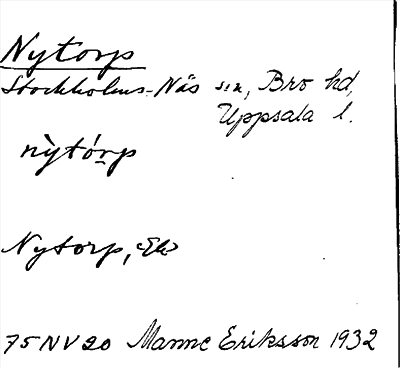 Nytorp
Stockholms-Näs sn, Bro hd,
Uppsala l.
nỳtórp
Nytorp, Ek
75 NV 20 Manne Eriksson 1932